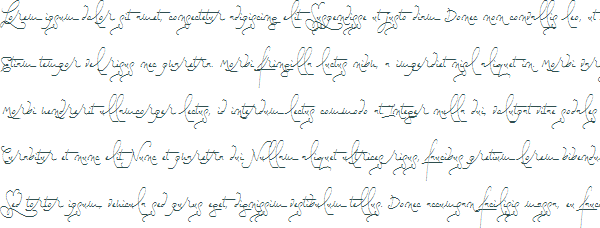 Lorem ipsum dolor sit amet, consectetur adipiscing elit. Suspendisse ut justo diam. Donec non convallis leo, ut
Etiam tempor vel risus nec pharetra. Morbi fringilla luctus nibh, a imperdiet nisl aliquet in. Morbi var
Morbi hendrerit ullamcorper lectus, id interdum lectus commodo at. Integer nulla dui, volutpat vitae sodales
Curabitur et nunc elit. Nunc et pharetra dui. Nullam aliquet ultrices risus, faucibus pretium lorem bibendum
Sed tortor ipsum, vehicula sed purus eget, dignissim vestibulum tellus. Donec accumsan facilisis massa, eu fauc